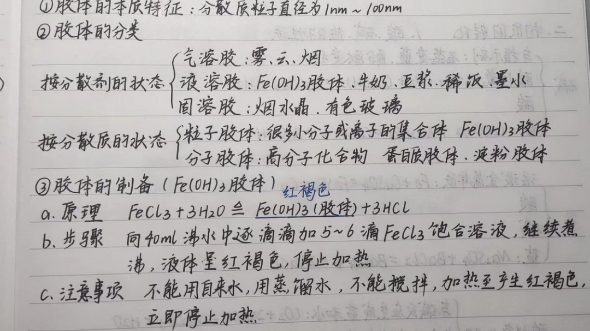 ①胶体的本质特征：分散质粒子直径为1nm~100nm
②胶体的分类
按分散剂的状态
气溶胶：雾、云、烟
液溶胶：Fe(OH)3胶体、牛奶、豆浆、稀饭、墨水
固溶胶：烟水晶、有色玻璃
按分散质的状态
粒子胶体：很多小分子或离子的集合体 Fe(OH)3胶体
分子胶体：高分子化合物 蛋白质胶体、淀粉胶体
③胶体的制备(Fe(OH)3胶体)
红褐色
a.原理 FeCl3+3H2O ≜ Fe(OH)3(胶体)+3HCl
b.步骤 向40ml沸水中逐滴滴加5~6滴FeCl3饱合溶液，继续煮
沸，液体呈红褐色，停止加热
c.注意事项 不能用自来水，用蒸馏水，不能搅拌，加热至产生红褐色，
立即停止加热